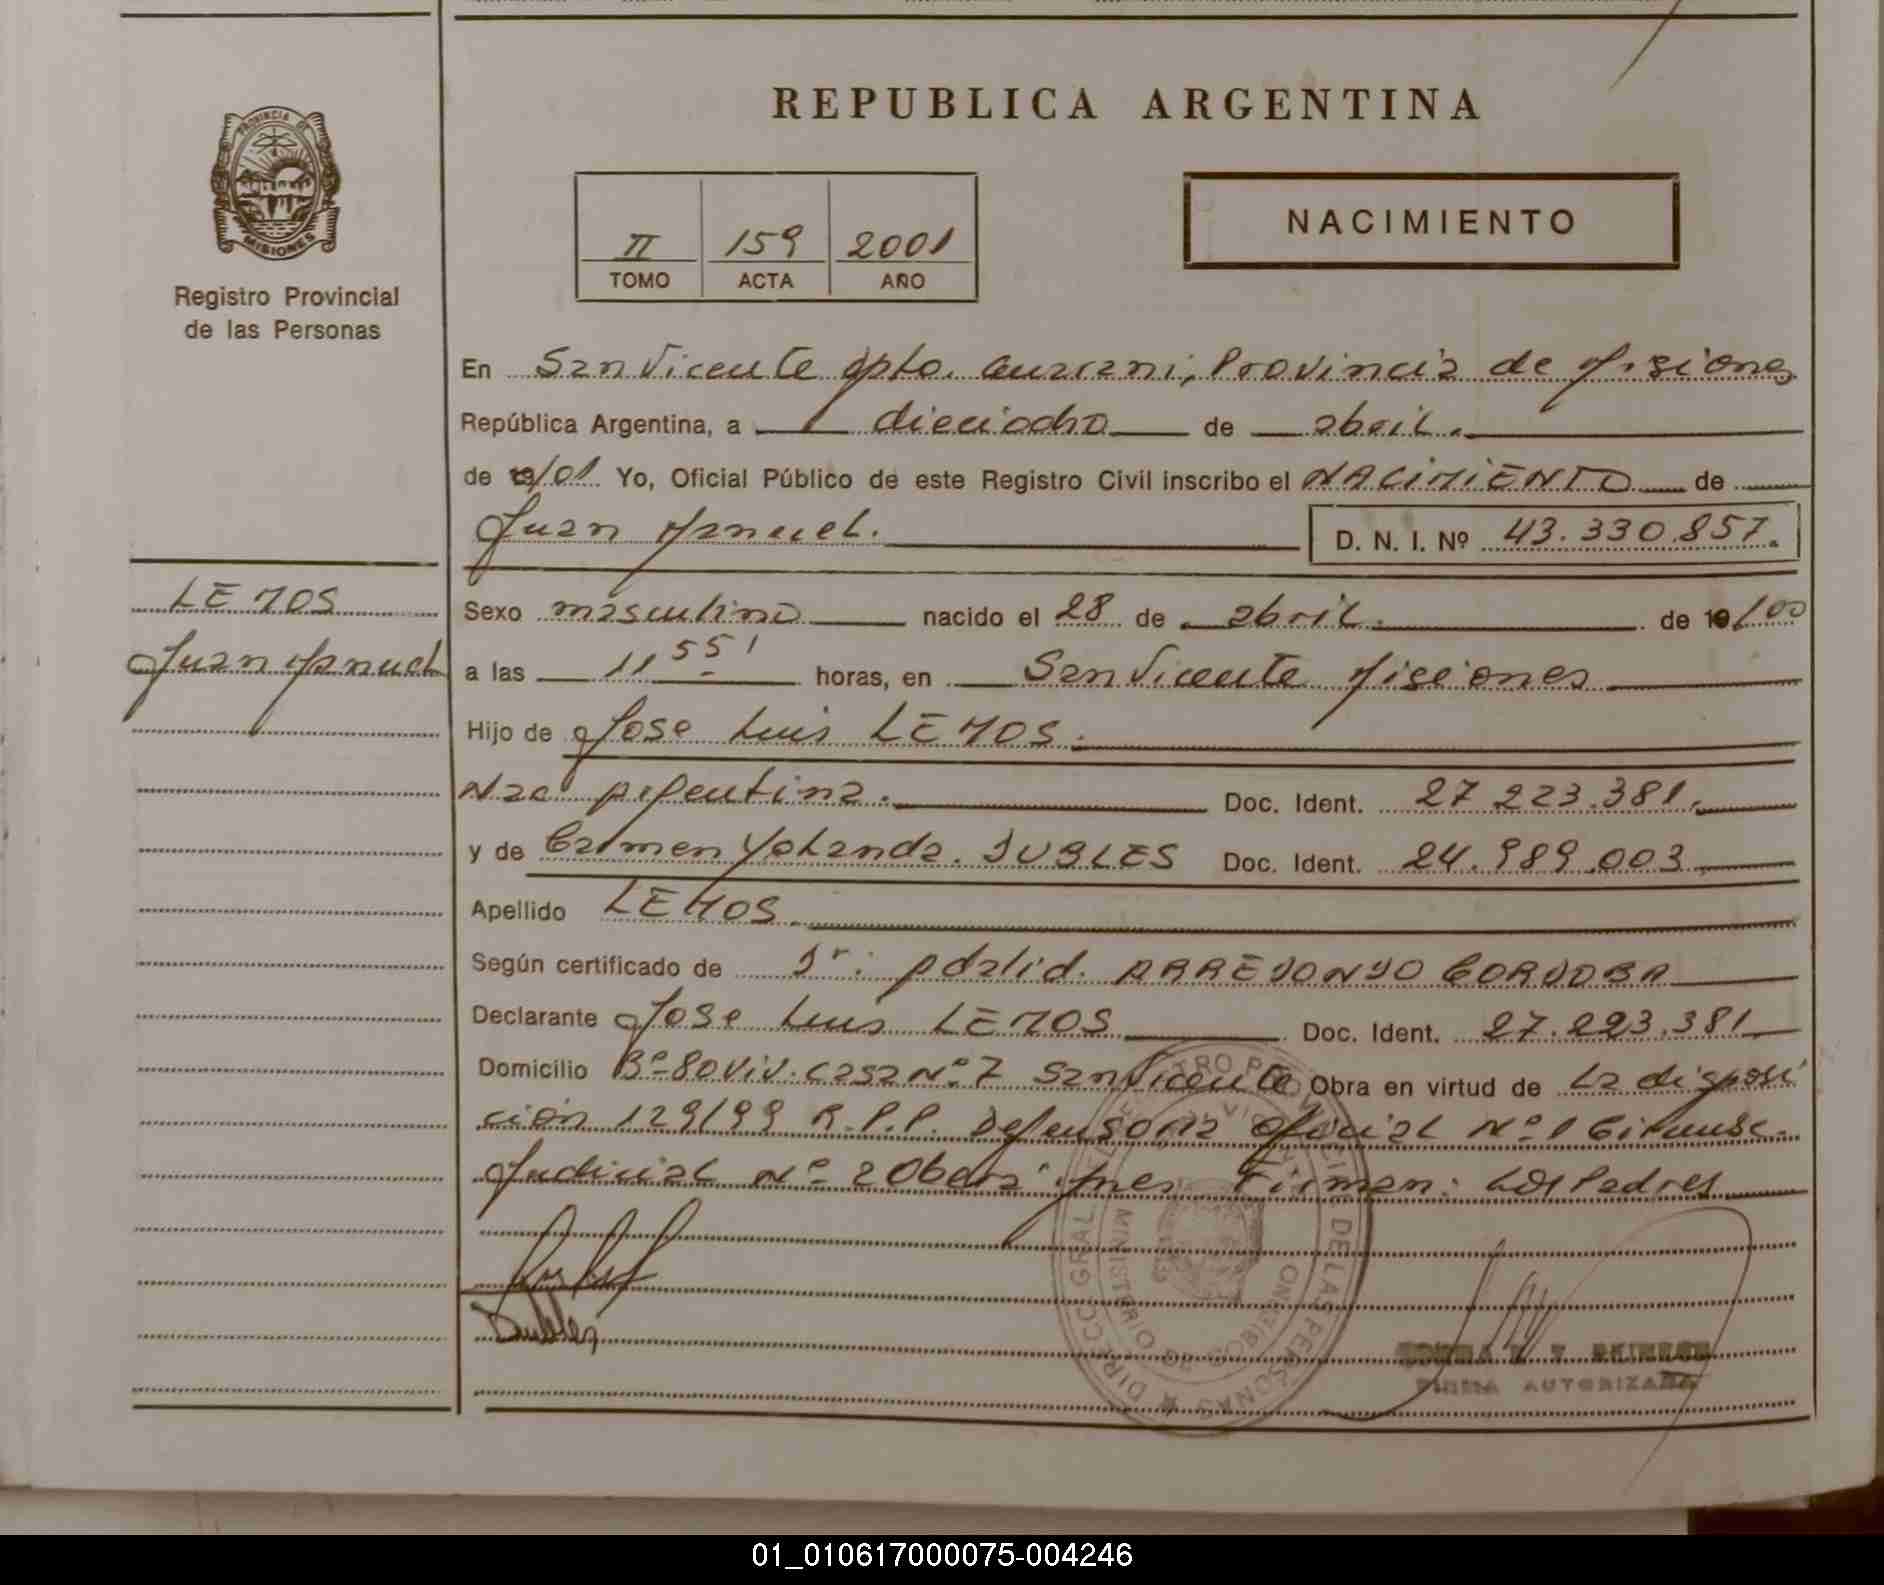 REPUBLICA ARGENTINA
PROVINCIA DE
MISIONES
Registro Provincial
de las Personas
II 159 2001
TOMO ACTA AÑO
NACIMIENTO
En San Vicente dpto. Guarani, Provincia de Misiones
República Argentina, a dieciocho de abril.
de 19/01 Yo, Oficial Público de este Registro Civil inscribo el NACIMIENTO de
Juan Manuel. D. N. I. Nº 43.330.857.
LEMOS
Juan Manuel
Sexo masculino nacido el 28 de abril. de 19/00
a las 11 55' horas, en San Vicente Misiones
Hijo de Jose Luis LEMOS.
Nac Argentina. Doc. Ident. 27.223.381.
y de Carmen Yolanda. DUBLES Doc. Ident. 24.989.003
Apellido LEMOS.
Según certificado de Dr: Adalid. ARREDONDO CORDOBA
Declarante Jose Luis LEMOS Doc. Ident. 27.223.381
Domicilio Bº 80 viv. casa Nº 7 San Vicente Obra en virtud de La disposi
ción 129/99 R.P.P. Defensoria Oficial Nº 1 Circunsc.
Judicial Nº 2 Obera Mnes. Firman: Los Padres
Dubles
DIRECC. GRAL. REGISTRO PROVINCIAL DE LAS PERSONAS
MINISTERIO DE GOBIERNO
FIRMA AUTORIZADA
01_010617000075-004246